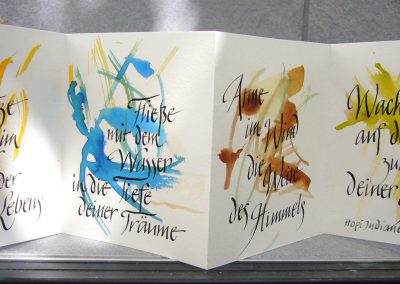 im
der
Lebens
Fließe
mit dem
Wasser
in die Tiefe
deiner Träume
Atme
im Wind
die Weite
des Himmels
Wach
auf d
zu
deiner
Hopi Indiane